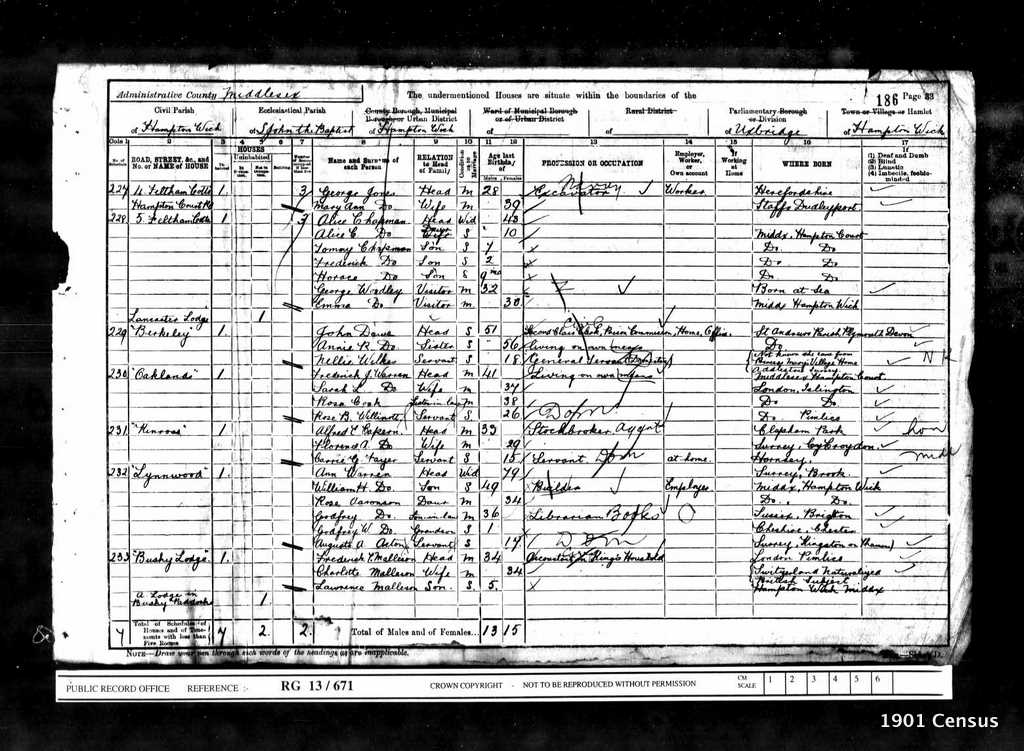 Administrative County Middlesex
The undermentioned Houses are situate within the boundaries of the
186 Page 33
Civil Parish
of Hampton Wick
Ecclesiastical Parish
of St John the Baptist
County Borough, Municipal Borough or Urban District
of Hampton Wick
Ward of Municipal Borough or of Urban District
of
Rural District
of
Parliamentary Borough or Division
of Uxbridge
Town or Village or Hamlet
of Hampton Wick
Cols 1 2 3 4 5 6 7 8 9 10 11 12 13 14 15 16 17
ROAD, STREET, &c., and No. or NAME of HOUSE
HOUSES
Uninhabited
Name and Surname of each Person
RELATION to Head of Family
Age last Birthday of
Males Females
PROFESSION OR OCCUPATION
Employer, Worker, or Own account
If Working at Home
WHERE BORN
(1) Deaf and Dumb
(2) Blind
(3) Lunatic
(4) Imbecile, feeble-minded
227 4 Feltham Cotts 1 3 George Jones Head M 28 Excavator Worker Herefordshire
Hampton Court Rd Mary Ann Do Wife M 39 Staffs Dudleyport
228 5 Feltham Cotts 1 3 Alice Chapman Head Wid 43
Alice E Do Daur S 10 Middx, Hampton Court
Tommy Chapman Son S 7 Do Do
Frederick Do Son S 2 Do Do
Horace Do Son S 9 mo Do Do
George Woodley Visitor M 32 Born at Sea
Emma Do Visitor M 30 Middx Hampton Wick
Lancaster Lodge 1
229 "Berkeley" 1 John Dawe Head S 51 Second Class Clerk, Prison Commission, Home Office St Andrews Parish Plymouth Devon
Annie R. Do Sister S 56 Living on own means Do
Nellie Wilkes Servant S 18 General Servant (Domestic) Not known she came from Princess Mary's Village Home Addlestone Surrey NK
230 "Oaklands" 1 Frederick J Warren Head M 41 Living on own means Middlesex Hampton Court
Sarah L Do Wife M 37 London, Islington
Rosa Cook Sister-in-law M 38 Do Do
Rose B. Servant S 26 Dom Do Pimlico
231 "Kinross" 1 Alfred C Head M 33 Stockbroker Clapham Park Lon
Florence A. Do Wife M 29 Surrey Croydon
Carrie G. Servant S 15 Servant Dom at home Hornsey Midd
232 "Lynnwood" 1 Ann Warren Head Wid 79 Surrey, Brook
William H. Do Son S 49 Builder Employer Middx, Hampton Wick
Rose Daur M 34 Do Do
Godfrey Do Son-in-law M 36 Librarian Books Sussex, Brighton
Godfrey W Do Grandson S 1 Cheshire, Chester
Augusta A Aston Servant S 19 Dom Surrey, Kingston on Thames
233 "Bushy Lodge" 1 Frederick P. Malleson Head M 34 Accountant in King's Household London Pimlico
Charlotte Malleson Wife M 34 Switzerland Naturalized British Subject
Lawrence Malleson Son S 5 Hampton Wick Middx
A Lodge in Bushy Paddocks 1
7 Total of Schedules of Houses and of Tenements with less than Five Rooms 7 2 2 Total of Males and of Females... 13 15
NOTE—Draw your pen through such words of the headings as are inapplicable.
PUBLIC RECORD OFFICE REFERENCE :- RG 13/671 CROWN COPYRIGHT - NOT TO BE REPRODUCED WITHOUT PERMISSION CM SCALE 1 2 3 4 5 6
1901 Census